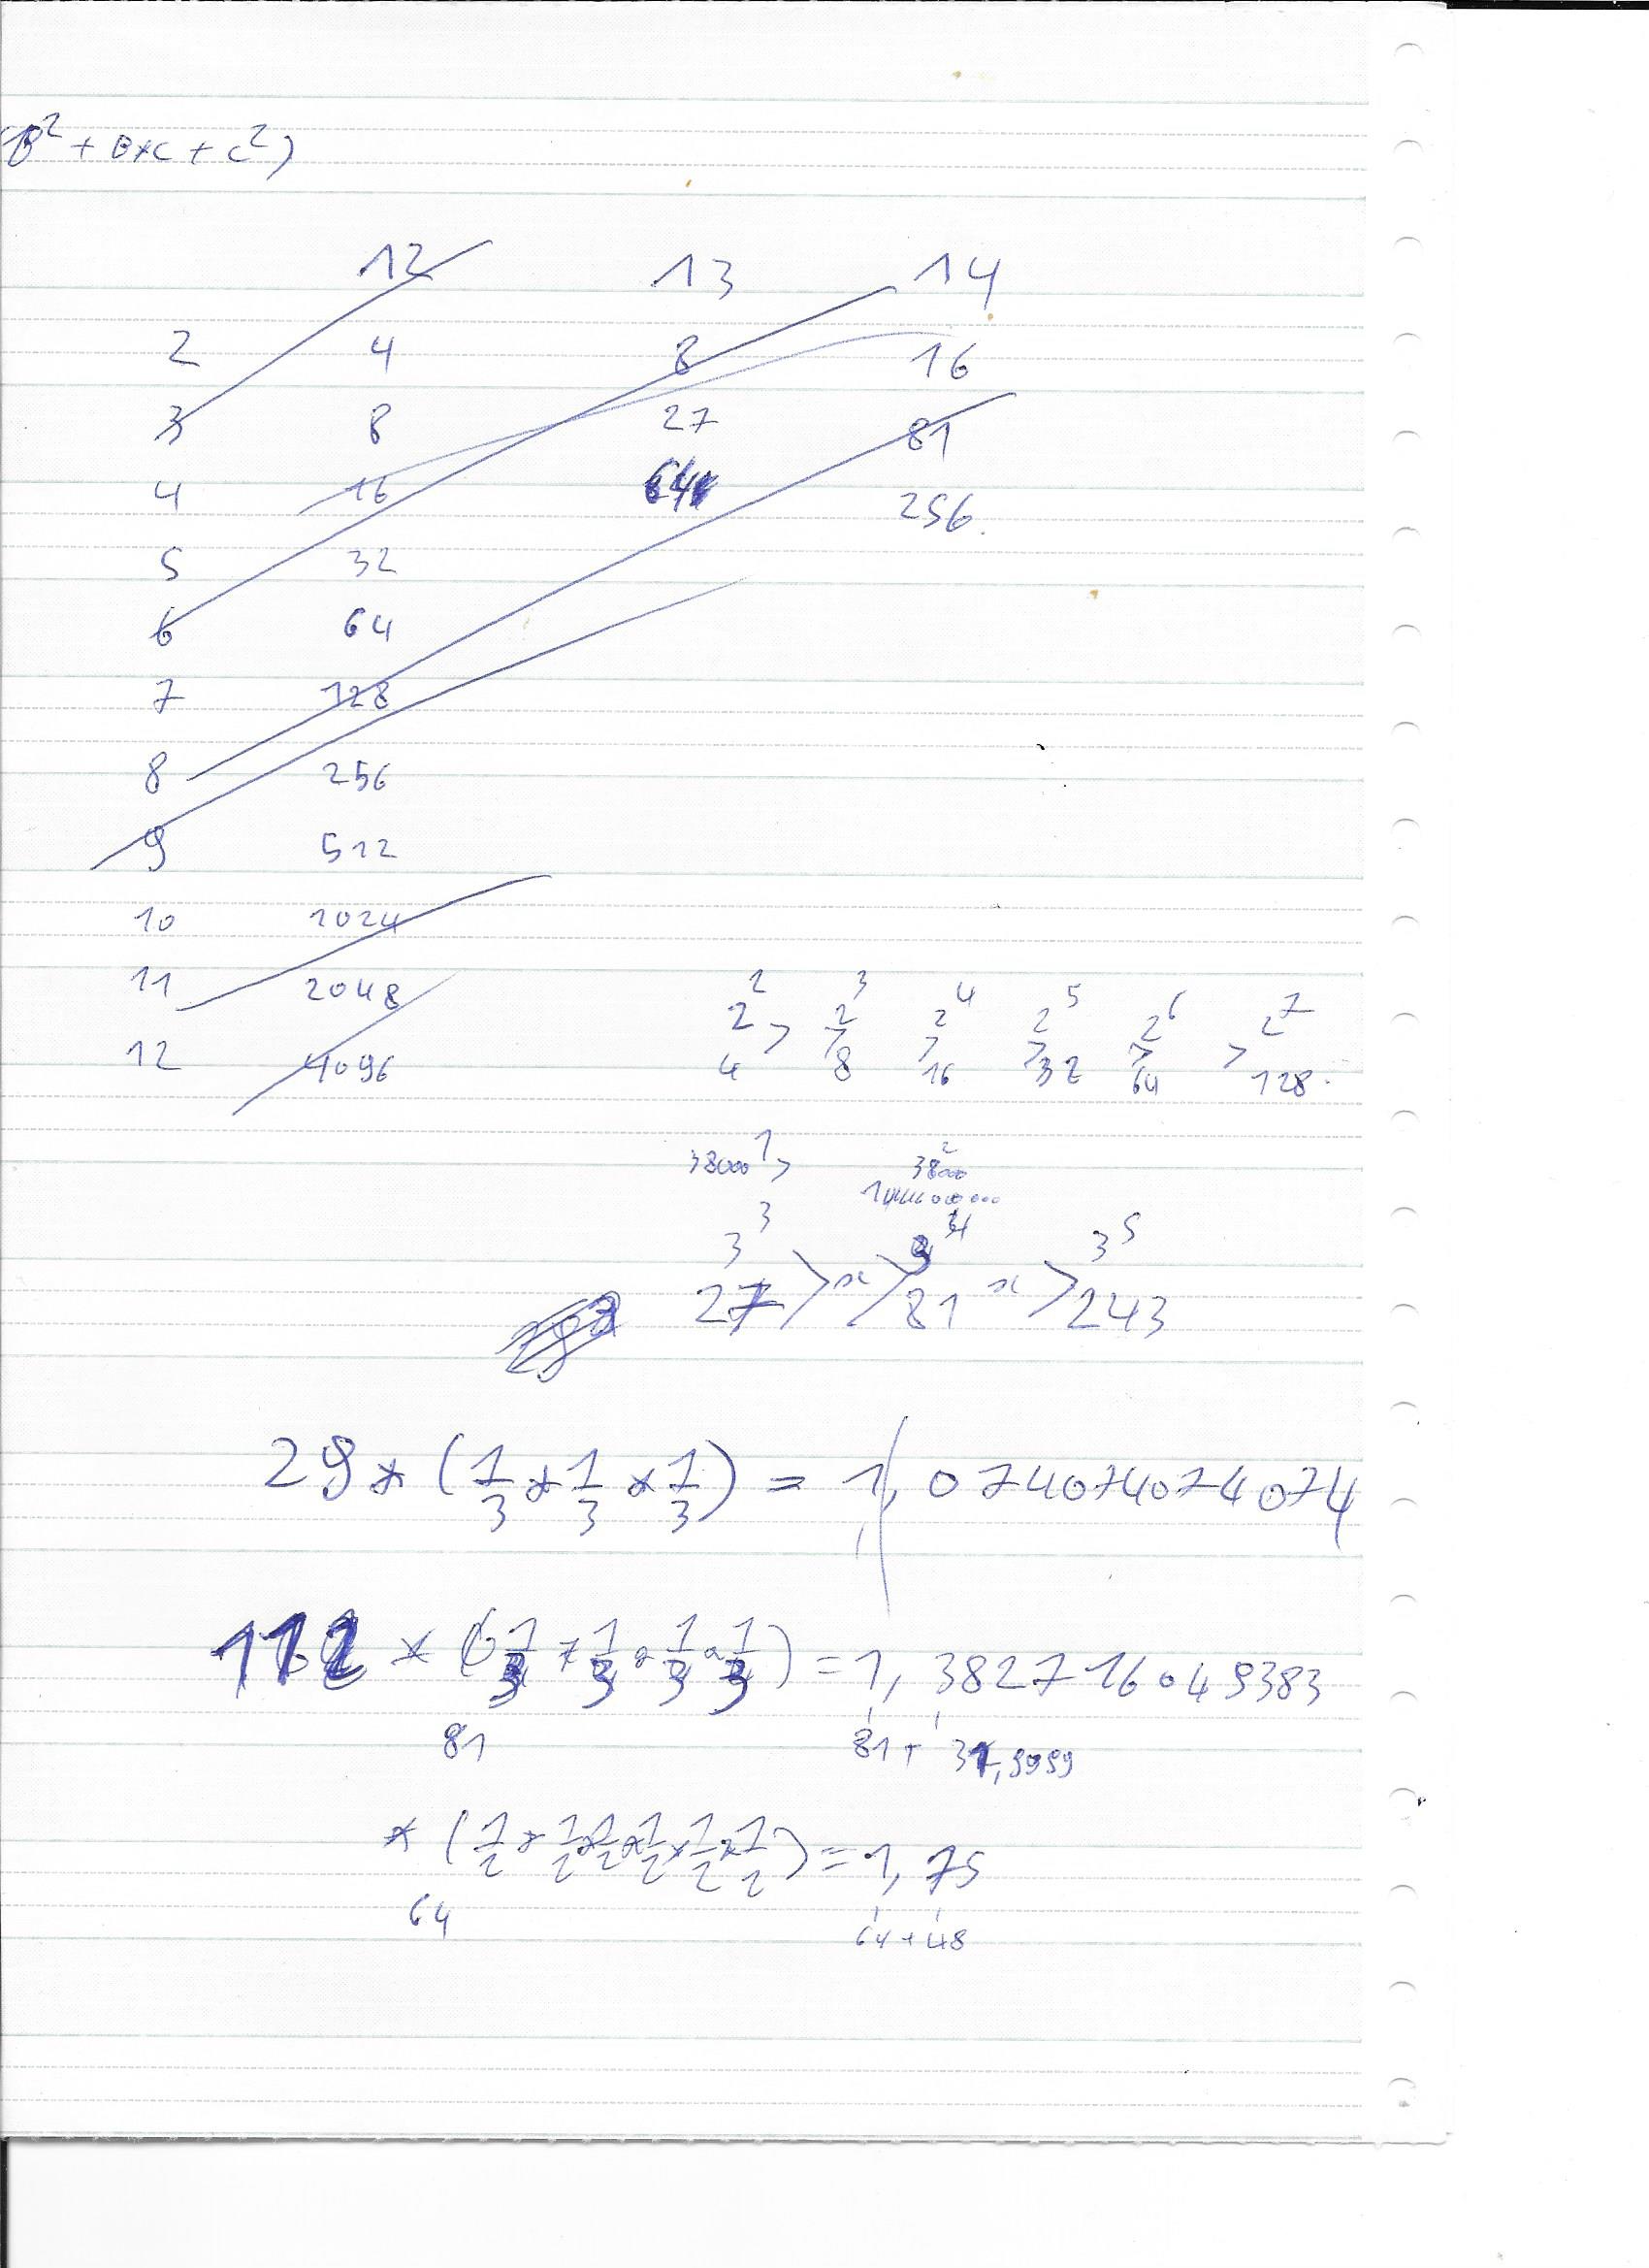 B² + B×c + c²)
12 13 14
2 4 8 16
3 8 27 81
4 16 64 256.
5 32
6 64
7 128
8 256
9 512
10 1024
11 2048
12 4096
2² > 2³ > 2⁴ > 2⁵ > 2⁶ > 2⁷
4 8 16 32 64 128.
38000¹ > 38000²
3³ 3⁴ 3⁵
27 > x > 81 x > 243
29 * (1/3 * 1/3 * 1/3) = 1,074074074074
112 * (1/3 * 1/3 * 1/3 * 1/3) = 1,382716049383
81 81 + 31,9999
* (1/2 * 1/2 * 1/2 * 1/2 * 1/2 * 1/2) = 1,75
64 64 + 48